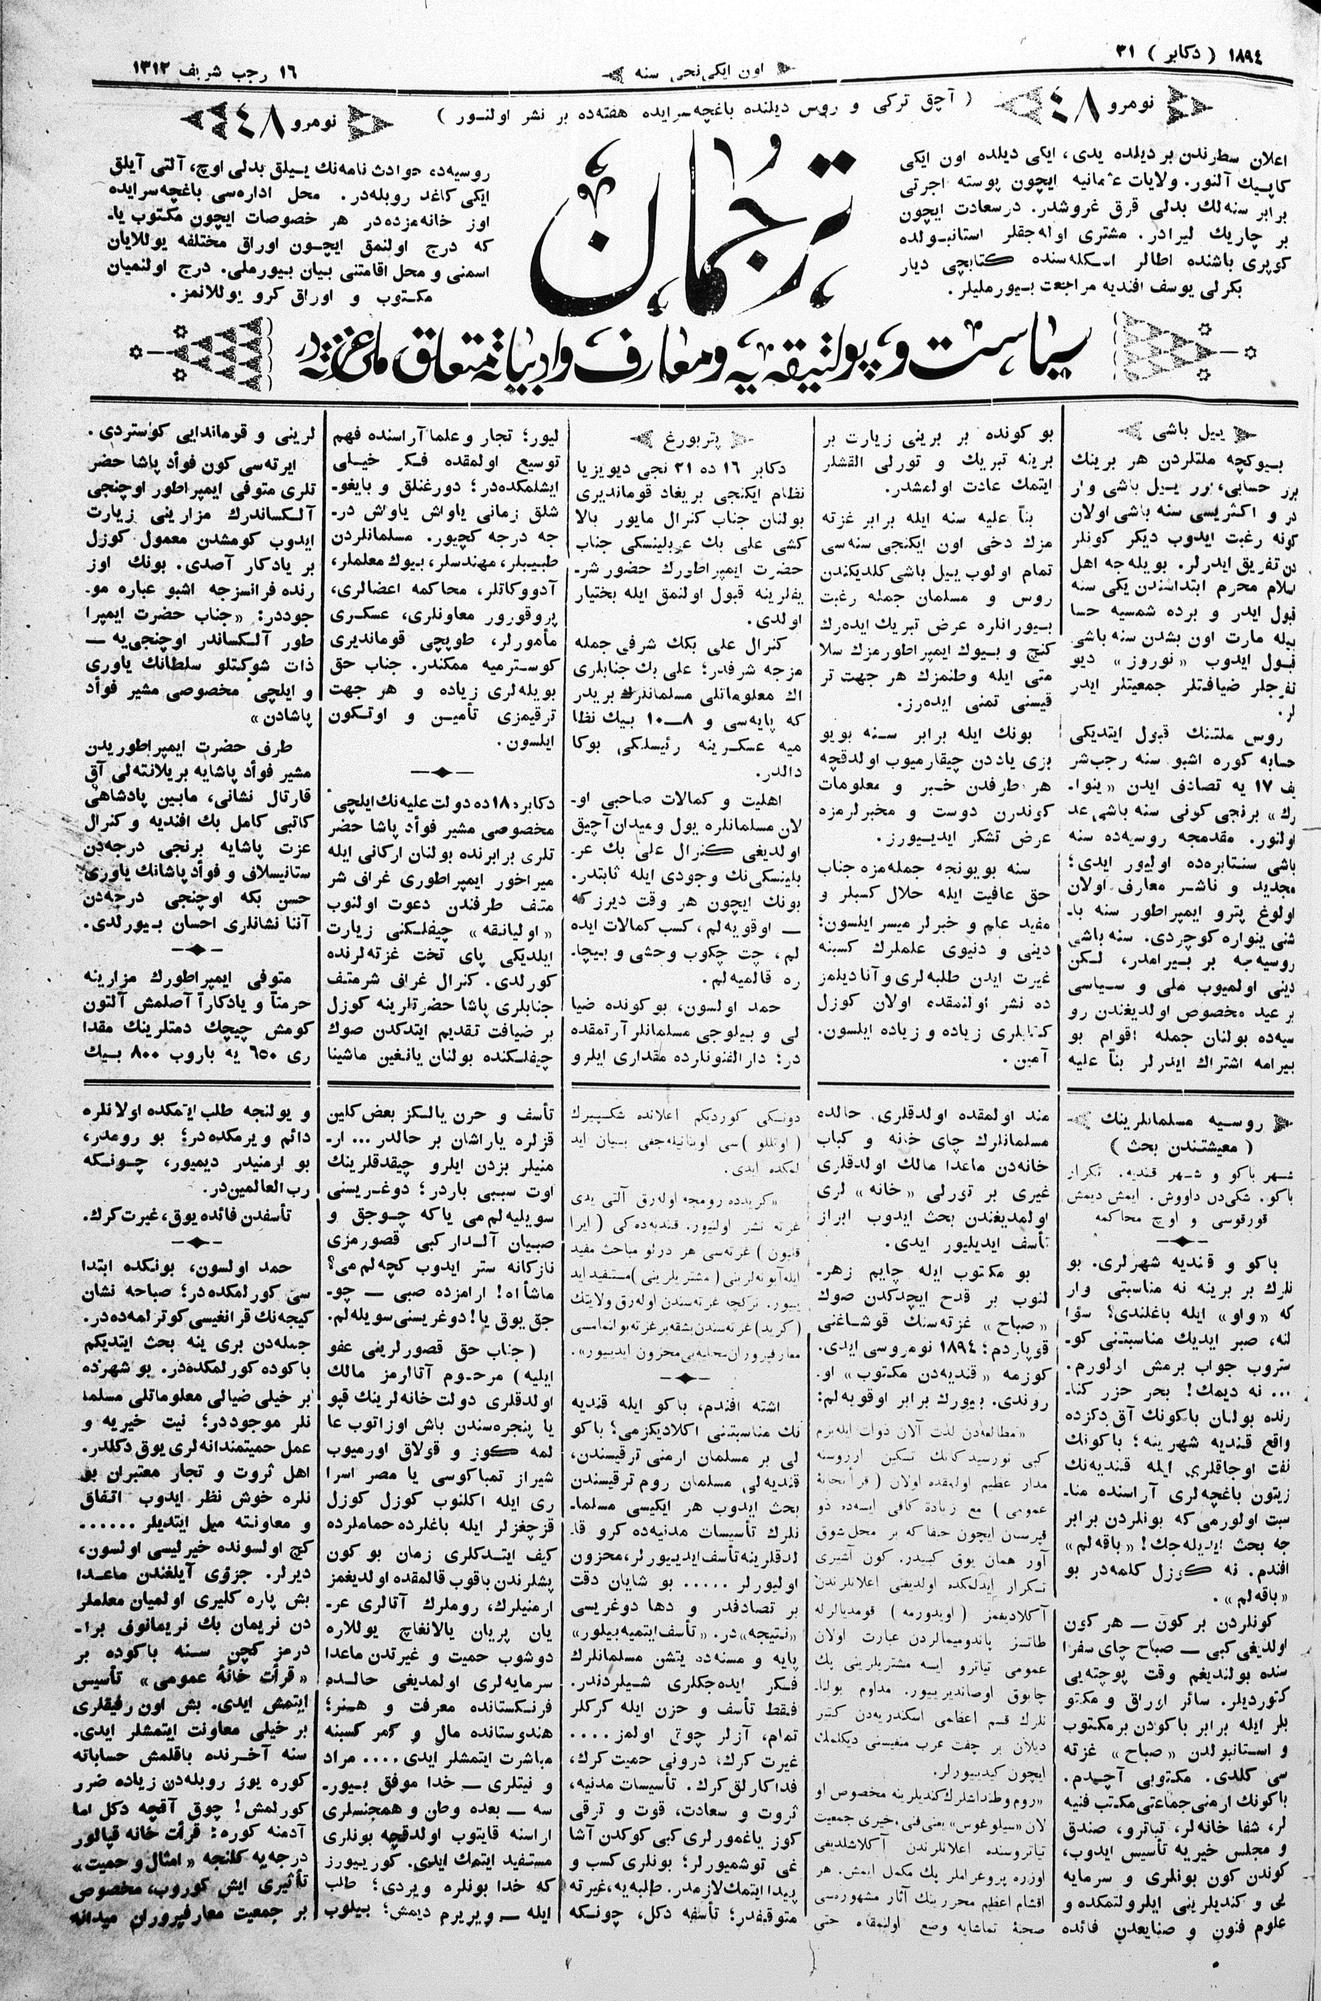 ١٨٩٤ ( دكابر ) ٣١
اون ايكى نجى سنه
١٦ رجب شريف ١٣١٢
نومرو ٤٨
( آچق تركى و روس ديلنده باغچه‌سرايده هفته‌ده بر نشر اولنور )
نومرو ٤٨
اعلان سطرندن بر ديلده يدى، ايكى ديلده اون ايكى
كاپيك آلنور. ولايات عثمانيه ايچون پوسته اجرتى
برابر سنه‌لك بدلى قرق غروشدر. درسعادت ايچون
بر چاريك ليرادر. مشترى اوله‌جقلر استانبولده
كوپرى باشنده اطالر اسكله‌سنده كتابچى ديار
بكرلى يوسف افنديه مراجعت بيورمليلر.
ترجمان
روسيه‌ده حوادث نامه‌نك ييللق بدلى اوچ، آلتى آيلق
ايكى كاغد روبله‌در. محل اداره‌سى باغچه‌سرايده
اوز خانه‌مزده‌در هر خصوصات ايچون مكتوب يا-
كه درج اولنمق ايچون اوراق مختلفه يوللايان
اسمنى و محل اقامتنى بيان بيورملى. درج اولنميان
مكتوب و اوراق كرو يوللانمز.
سياست و پولتيقه‌يه و معارف و ادبياته متعلق ملى غزته‌در
ييل باشى
بيوكچه ملتلردن هر برينك
برر حسابى، برر ييل باشى وار
در و اكثريسى سنه باشى اولان
كونه رغبت ايدوب ديكر كونلر
دن تفريق ايدرلر. بويله‌جه اهل
اسلام محرم ابتداسندن يكى سنه
قبول ايدر و برده شمسيه حسا
بيله مارت اون بشدن سنه باشى
قبول ايدوب «نوروز» ديو
تفرجلر ضيافتلر جمعيتلر ايدر
لر.
روس ملتنك قبول ايتديكى
حسابه كوره اشبو سنه رجب‌شر
يف ١٧ يه تصادف ايدن «ينوا-
رك» برنجى كونى سنه باشى عد
اولنور. مقدمجه روسيه‌ده سنه
باشى سنتابره‌ده اوليور ايدى؛
مجديد و ناشر معارف اولان
اولوغ پترو ايمپراطور سنه با-
شنى ينواره كوچردى. سنه باشى
روسيه‌جه بر بيرامدر، لكن
دينى اولميوب ملى و سياسى
بر عيد مخصوص اولديغندن رو
سيه‌ده بولنان جمله اقوام بو
بيرامه اشتراك ايدرلر بناً عليه
بو كونده بر برينى زيارت بر
برينه تبريك و تورلى القشلر
ايتمك عادت اولمشدر.
بناً عليه سنه ايله برابر غزته
مزك دخى اون ايكنجى سنه‌سى
تمام اولوب ييل باشى كلديكندن
روس و مسلمان جمله رغبت
بيورانلره عرض تبريك ايده‌رك
كنج و بيوك ايمپراطورمزك سلا
متى ايله وطنمزك هر جهت تر
قيسنى تمنى ايده‌رز.
بونك ايله برابر سنه بويو
بزى ياددن چيقارميوب اولدقچه
هر طرفدن خبر و معلومات
كوندرن دوست و مخبرلرمزه
عرض تشكر ايدييورز.
سنه بويونجه جمله‌مزه جناب
حق عافيت ايله حلال كسبلر و
مفيد علم و خبرلر ميسر ايلسون؛
دينى و دنيوى علملرك كسبنه
غيرت ايدن طلبه‌لرى و آنا ديلمز
ده نشر اولنمقده اولان كوزل
كتابلرى زياده و زياده ايلسون.
آمين.
پتربورغ
دكابر ١٦ ده ٢١ نجى ديويزيا
نظام ايكنجى بريغاد قوماندیرى
بولنان جناب كنرال مايور بالا
كشى على بك عربلينسكى جناب
حضرت ايمپراطورك حضور شر-
يفلرينه قبول اولنمق ايله بختيار
اولدى.
كنرال على بكك شرفى جمله
مزجه شرفدر؛ على بك جنابلرى
اك معلوماتلى مسلمانلرك بريدر
كه پايه‌سى و ٨—١٠ بيك نظا
ميه عسكرينه رئيسلكى بوكا
دالدر.
اهليت و كمالات صاحبى او-
لان مسلمانلره يول و ميدان آچيق
اولديغى كنرال على بك عر-
بلينسكى‌نك وجودى ايله ثابتدر.
بونك ايچون هر وقت ديرز كه
— اوقويه‌لم، كسب كمالات ايده
لم، چت چكوب وحشى و بيچا-
ره قالميه‌لم.
حمد اولسون، بو كونده ضيا
لى و بيلوجى مسلمانلر آرتمقده
در؛ دارالفنونلرده مقدارى ايلرو
ليور؛ تجار و علما آراسنده فهم
توسيع اولمقده فكر خيلى
ايشلمكده‌در؛ دورغنلق و بايغو-
شلق زمانى ياواش ياواش در-
جه درجه كچيور. مسلمانلردن
طبيبلر، مهندسلر، بيوك معلملر،
آدووكاتلر، محاكمه اعضالرى،
پروقورور معاونلرى، عسكرى
مأمورلر، طوپچى قوماندیرى
كوسترميه ممكندر. جناب حق
بويله‌لرى زياده و هر جهت
ترقيمزى تأمين و اوتكون
ايلسون.
دكابر١٨٥ده دولت عليه‌نك ايلچى
مخصوصى مشير فوأد پاشا حضر
تلرى برابرنده بولنان اركانى ايله
ميراخور ايمپراطورى غراف شر
متف طرفندن دعوت اولنوب
«اوليانقه» چيفلكنى زيارت
ايلديكى پاى تخت غزته‌لرنده
كورلدى. كنرال غراف شرمتف
جنابلرى پاشا حضرتلرينه كوزل
بر ضيافت تقديم ايتدكدن صوك
چيفلكنده بولنان يانغين ماشينا
لرينى و قومانداسى كوستردى.
ايرته‌سى كون فوأد پاشا حضر
تلرى متوفى ايمپراطور اوچنجى
آلكساندرك مزارينى زيارت
ايدوب كومشدن معمول كوزل
بر يادكار آصدى. بونك اوز
رنده فرانسزجه اشبو عباره مو-
جوددر: «جناب حضرت ايمپرا
طور آلكساندر اوچنجى‌يه —
ذات شوكتلو سلطانك ياورى
و ايلچى مخصوصى مشير فوأد
پاشادن»
طرف حضرت ايمپراطوريدن
مشير فوأد پاشايه بريلانته‌لى آق
قارتال نشانى، مابين پادشاهى
كاتبى كامل بك افنديه و كنرال
عزت پاشايه برنجى درجه‌دن
ستانيسلاف و فوأد پاشانك ياورى
حسن بكه اوچنجى درجه‌دن
آننا نشانلرى احسان بيورلدى.
متوفى ايمپراطورك مزارينه
حرمتاً و يادكاراً آصلمش آلتون
كومش چيچك دمتلرينك مقدا
رى ٦٥٠ يه باروب ٨٠٠ بيك
روسيه مسلمانلرينك
( معيشتندن بحث )
شهر باكو و شهر قنديه. تكرار
باكو. شكى‌دن داووش. ايمش ديمش
قورقوسى و اوچ محاكمه
باكو و قنديه شهرلرى. بو
نلرك بر برينه نه مناسبتى وار
كه «واو» ايله باغلندى؟ سؤا
لنه، صبر ايديك مناسبتنى كو-
ستروب جواب برمش اولورم.
... نه ديمك! بحر حزر كنا-
رنده بولنان باكونك آق دكزده
واقع قنديه شهرينه؛ باكونك
نفت اوجاقلرى ايله قنديه‌نك
زيتون باغچه‌لرى آراسنده منا-
سبت اولورمى كه بونلردن برابر
جه بحث ايديله‌جك! «باقه‌لم»
افندم. نه كوزل كلمه‌در بو
«باقه‌لم».
كونلردن بر كون — هر كون
اولديغى كبى — صباح چاى سفرا
سنده بولنديغم وقت پوچته‌يى
كتورديلر. سائر اوراق و مكتو
بلر ايله برابر باكودن بر مكتوب
و استانبولدن «صباح» غزته
سى كلدى. مكتوبى آچيدم.
باكونك ارمنى جماعتى مكتب فنيه
لر، شفا خانه‌لر، تياترو، صندق
و مجلس خيريه تأسيس ايدوب،
كوندن كون بونلرى و سرمايه
لى و كنديلرينى ايلرولتمكده و
علوم فنون و صنايعدن فائده
مند اولمقده اولدقلرى حالده
مسلمانلرك چاى خانه و كباب
خانه‌دن ماعدا مالك اولدقلرى
غيرى بر تورلى «خانه» لرى
اولمديغندن بحث ايدوب ابراز
تأسف ايديليور ايدى.
بو مكتوب ايله چايم زهر-
لنوب بر قدح ايچدكدن صوك
«صباح» غزته‌سنك قوشاغنى
قوپاردم؛ ١٨٩٤ نومروسى ايدى.
كوزمه «قنديه‌دن مكتوب» او.
روندى. بيورك برابر اوقويه‌لم:
«مطالعه‌دن لذت آلان ذوات ايله‌برم
عمومى ) مع زيادة كافى ايسه‌ده ذو
آور همان يوق كبيدر. كون آشيرى
تكرار ايدلمكده اولديغنى اعلانلرندن
آكلاديغمز ( اويدورمه ) قومديالرله
طاتسز پاندوميمالردن عبارت اولان
عمومى تياترو ايسه مشتريلرينى پك
چابوق اوصانديريیور. مداوم بولنا-
نلرك قسم اعظمى اسكندريه‌دن كتير
ديلان بر چفت عرب مغنيسنى ديكلمك
ايچون كيدييورلر.
«روم وطنداشلرك كنديلرينه مخصوص او
لان «سيلوغوس» يعنى فنى، خيرى جمعيت
تياتروسنده اعلانلرندن آكلاشلديغى
اوزره پروغراملر پك مكمل ايمش. هر
اقشام اعظم محررينك آثار مشهوره‌سى
صحنهٔ تماشايه وضع اولنمقده حتى
دونكى كورديكم اعلانده شكسپيرك
( اوتللو ) سى اوينانيله‌جغى بيان ايد
لمكده ايدى.
«كريدده رومجه اوله‌رق آلتى يدى
غزته نشر اولنيور. قنديه‌ده‌كى ( ايرا
قليون ) غزته‌سى هر درلو مباحث مفيد
ايله آبونه‌لرينى ( مشتريلرينى ) مستفيد ايد
ييور. تركجه غزته‌سندن اوله‌رق ولايتك
( كريد ) غزته‌سندن بشقه بر غزته بولنمامسى
معارفپروران محليه‌يى محزون ايدييور».
اشته افندم، باكو ايله قنديه
نك مناسبتنى اكلاديكزمى؛ باكو
لى بر مسلمان ارمنى ترقيسندن،
قنديه‌لى مسلمان روم ترقيسندن
بحث ايدوب هر ايكيسى مسلما-
نلرك تأسيسات مدنيه‌ده كرو قا-
لدقلرينه تأسف ايدييورلر، محزون
اوليورلر ..... بو شايان دقت
بر تصادفدر و دها دوغريسى
«نتيجه» در. «تأسف ايتميه بيلور»
پايه و مسنده يتشن مسلمانلرك
فكر ايده‌جكلرى شيلردندر.
فقط تأسف و حزن ايله كركلر
تمام، آزلر چوق اولمز ....
غيرت كرك، درونى حميت كرك،
فداكارلق كرك. تأسيسات مدنيه،
ثروت و سعادت، قوت و ترقى
كوز ياغمورلرى كبى كوكدن آشا
غى توشميورلر؛ بونلرى كسب و
پيدا ايتمك لازمدر. طلبه‌يه، غيرته
متوقفدر؛ تأسفه دكل، چونكه
تأسف و حرن يالكز بعض كلين
قزلره ياراشان بر حالدر ... ار-
منيلر بزدن ايلرو چيقدقلرينك
اوت سببى باردر؛ دوغريسنى
سويليه‌لم مى ياكه چوجق و
صبيان آلدار كبى قصورمزى
نازكانه ستر ايدوب كچه‌لم مى؟
ماشأاه! ارامزده صبى — چو-
جق يوق يا! دوغريسنى سويله‌لم.
( جناب حق قصورلرينى عفو
ايليه ) مرحوم آتالرمز مالك
اولدقلرى دولت خانه‌لرينك قپو
يا پنجره‌سندن باش اوزاتوب عا
لمه كوز و قولاق اورميوب
شيراز تمباكوسى يا مصر اسرا
رى ايله اكلنوب كوزل كوزل
قزچغزلر ايله باغلرده حماملرده
كيف ايتدكلرى زمان بو كون
پشلرندن باقوب قالمقده اولديغمز
ارمنيلرك، روملرك آتالرى عر-
يان پريان يالانغاچ يوللاره
دوشوب حميت و غيرتدن ماعدا
سرمايه‌لرى اولمديغى حالده
فرنكستانده معرفت و هنر؛
هندوستانده مال و كمر كسبنه
مباشرت ايتمشلر ايدى .... مراد
و نيتلرى — خدا موفق بيور-
سه — بعده وطن و همجنسلرى
اراسنه قايتوب اولدقچه بونلرى
مستفيد ايتمك ايدى. كورييورز
كه خدا بونلره ويردى؛ طلب
ايله — ويريرم ديمش؛ بيلوب
و يولنجه طلب ايتمكده اولانلره
دائم ويرمكده‌در؛ بو رومدر،
بو ارمنيدر ديميور، چونكه
رب العالمين‌در.
تأسفدن فائده يوق، غيرت كرك.
حمد اولسون، بونكده ابتدا
سى كورلمكده‌در؛ صباحه نشان
كيجه‌نك قرانغيسى كوترلمه‌ده‌در.
جمله‌دن برى ينه بحث ايتديكم
باكوده كورلمكده‌در. بو شهرده
بر خيلى ضيالى معلوماتلى مسلما
نلر موجوددر؛ نيت خيريه و
عمل حميتمندانه‌لرى يوق دكلدر.
اهل ثروت و تجار معتبران بو
نلره خوش نظر ايدوب اتفاق
و معاونته ميل ايتديلر ......
كچ اولسونده خيرليسى اولسون،
ديرلر. جزؤى آيلغندن ماعدا
بش پاره كليرى اولميان معلملر
دن نريمان بك نريمانوف برا-
درمز كچن سنه باكوده بر
«قرأت خانهٔ عمومى» تأسيس
ايتمش ايدى. بش اون رفيقلرى
بر خيلى معاونت ايتمشلر ايدى.
سنه آخرنده باقلمش حساباته
كوره يوز روبله‌دن زياده ضرر
كورلمش! چوق آقچه دكل اما
آدمنه كوره: قرأت خانه قپالور
درجه‌يه كلنجه «امثال و حميت»
تأثيرى ايش كوروب، مخصوص
بر جمعيت معارفپروران ميدانه